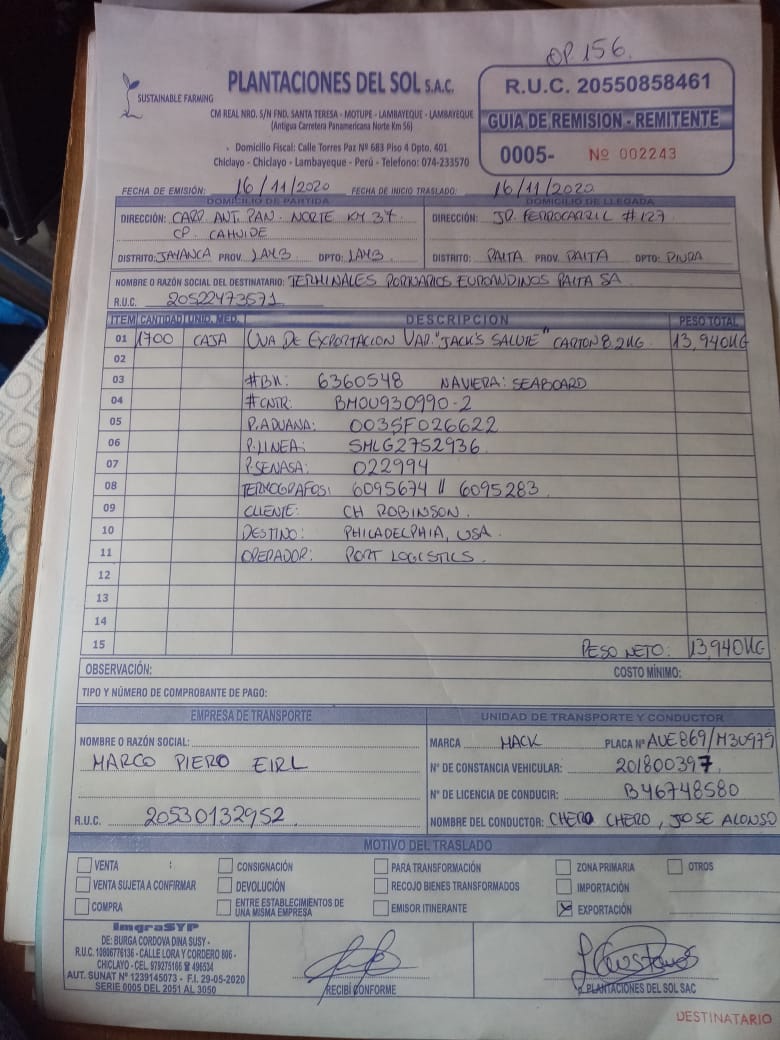 OP. 156.
SUSTAINABLE FARMING
PLANTACIONES DEL SOL S.A.C.
CM REAL NRO. S/N FND. SANTA TERESA - MOTUPE - LAMBAYEQUE - LAMBAYEQUE
(Antigua Carretera Panamericana Norte Km 56)
Domicilio Fiscal: Calle Torres Paz Nº 683 Piso 4 Dpto. 401
Chiclayo - Chiclayo - Lambayeque - Perú - Telefono: 074-233570
R.U.C. 20550858461
GUIA DE REMISION - REMITENTE
0005- Nº 002243
FECHA DE EMISIÓN: 16/11/2020 FECHA DE INICIO TRASLADO: 16/11/2020
DOMICILIO DE PARTIDA DOMICILIO DE LLEGADA
DIRECCIÓN: CARR. ANT. PAN. NORTE KM 37 DIRECCIÓN: JR. FERROCARRIL #127
CP. CAHUIDE
DISTRITO: JAYANCA PROV. LAMB DPTO: LAMB DISTRITO: PAITA PROV. PAITA DPTO: PIURA
NOMBRE O RAZÓN SOCIAL DEL DESTINATARIO: TERMINALES PORTUARIOS EUROANDINOS PAITA SA
R.U.C. 20522473571
ITEM CANTIDAD UNID. MED. DESCRIPCION PESO TOTAL
01 1700 CAJA UVA DE EXPORTACION VAR. "JACK'S SALUTE" CARTON 8.2KG 13,940KG
02
03 #BK: 6360548 NAVIERA: SEABOARD
04 #CNTR: BMOU930990-2
05 P.ADUANA: 0035F026622
06 P.LINEA: SMLG2752936
07 P.SENASA: 022994
08 TERMOGRAFOS: 6095674 // 6095283
09 CLIENTE: CH ROBINSON.
10 DESTINO: PHILADELPHIA, USA.
11 OPERADOR: PORT LOGISTICS.
12
13
14
15 PESO NETO: 13,940KG
OBSERVACIÓN: COSTO MÍNIMO:
TIPO Y NÚMERO DE COMPROBANTE DE PAGO:
EMPRESA DE TRANSPORTE UNIDAD DE TRANSPORTE Y CONDUCTOR
NOMBRE O RAZÓN SOCIAL: MARCA MACK PLACA Nº AUE869/M3U979
MARCO PIERO EIRL Nº DE CONSTANCIA VEHICULAR: 201800397
Nº DE LICENCIA DE CONDUCIR: B46748580
R.U.C. 20530132952 NOMBRE DEL CONDUCTOR: CHERO CHERO, JOSE ALONSO
MOTIVO DEL TRASLADO
VENTA : CONSIGNACIÓN PARA TRANSFORMACIÓN ZONA PRIMARIA OTROS
VENTA SUJETA A CONFIRMAR DEVOLUCIÓN RECOJO BIENES TRANSFORMADOS IMPORTACIÓN
COMPRA ENTRE ESTABLECIMIENTOS DE UNA MISMA EMPRESA EMISOR ITINERANTE X EXPORTACIÓN
ImgraSYP
DE: BURGA CORDOVA DINA SUSY -
R.U.C. 10806776136 - CALLE LORA Y CORDERO 806 -
CHICLAYO - CEL. 979275166 ☎ 496534
AUT. SUNAT Nº 1239145073 - F.I. 29-05-2020
SERIE 0005 DEL 2051 AL 3050
RECIBÍ CONFORME
PLANTACIONES DEL SOL SAC
DESTINATARIO